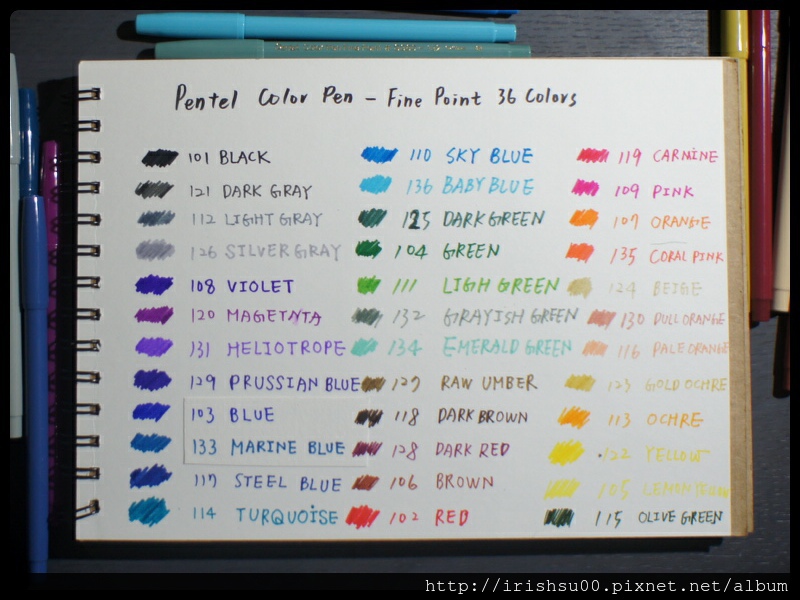 Pentel Color Pen - Fine Point 36 Colors
101 BLACK
121 DARK GRAY
112 LIGHT GRAY
126 SILVER GRAY
108 VIOLET
120 MAGETNTA
131 HELIOTROPE
129 PRUSSIAN BLUE
103 BLUE
133 MARINE BLUE
117 STEEL BLUE
114 TURQUOISE
110 SKY BLUE
136 BABY BLUE
125 DARK GREEN
104 GREEN
111 LIGH GREEN
132 GRAYISH GREEN
134 EMERALD GREEN
127 RAW UMBER
118 DARK BROWN
128 DARK RED
106 BROWN
102 RED
119 CARMINE
109 PINK
107 ORANGE
135 CORAL PINK
124 BEIGE
130 DULL ORANGE
116 PALE ORANGE
123 GOLD OCHRE
113 OCHRE
122 YELLOW
105 LEMON YELLOW
115 OLIVE GREEN
http://irishsu00.pixnet.net/album